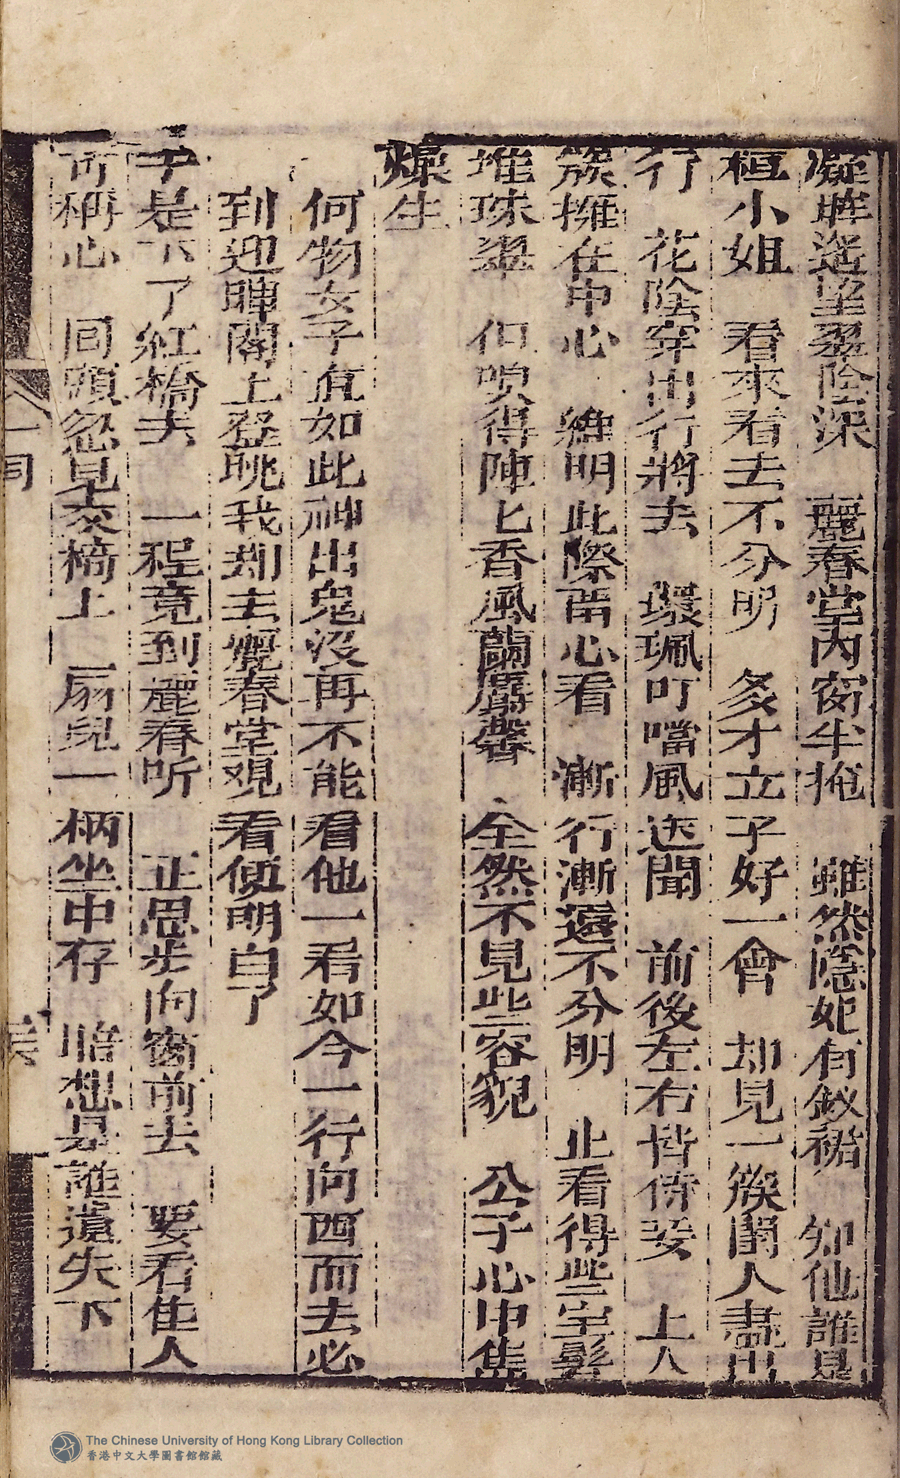 凝眸遥望翠陰深　麗春堂內窗半掩　雖然隱妃有釵裙　知他誰是
桓小姐　看來看去不分明　多才立子好一會　却見一簇閨人盡出
行　花陰穿出行將去　環珮叮噹風送聞　前後左右皆侍妾　上人
簇擁在中心　維明此際留心看　漸行漸遠不分明　止看得些宝髻
堆珠翠　但嗅得陣匕香風蘭麝馨　全然不見些容貌　公子心中焦
燥生
何物女子直如此神出鬼没再不能看他一看如今一行向西而去必
到迎暉閣上登眺我却去麗春堂观看便明白了
于是下了紅橋去　一程竟到麗春听　正思步向窗前去　要看佳人
可称心　囘頭忽見交椅上　扇兒一柄坐中存　暗想是誰遺失下
囘
The Chinese University of Hong Kong Library Collection
香港中文大學圖書館館藏